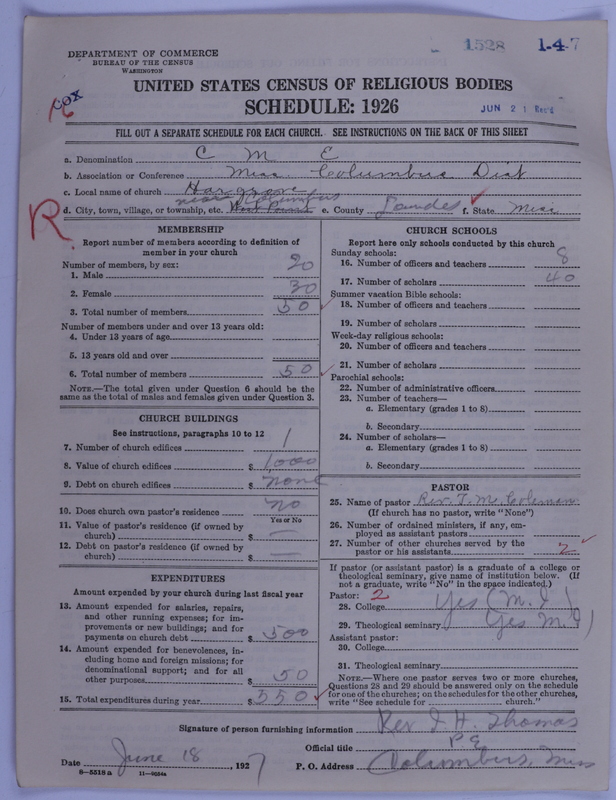 1528 1-4-7
DEPARTMENT OF COMMERCE
BUREAU OF THE CENSUS
WASHINGTON
UNITED STATES CENSUS OF RELIGIOUS BODIES
COX
SCHEDULE: 1926
JUN 21 Rec'd
FILL OUT A SEPARATE SCHEDULE FOR EACH CHURCH. SEE INSTRUCTIONS ON THE BACK OF THIS SHEET
a. Denomination C M E
b. Association or Conference Miss. Columbus Dist
c. Local name of church Hargrove
near Columbus
d. City, town, village, or township, etc. e. County Lowndes f. State Miss
R
MEMBERSHIP
Report number of members according to definition of
member in your church
Number of members, by sex:
1. Male 20
2. Female 30
3. Total number of members 50
Number of members under and over 13 years old:
4. Under 13 years of age
5. 13 years old and over
6. Total number of members 50
NOTE.—The total given under Question 6 should be
same as the total of males and females given under Question 3.
CHURCH BUILDINGS
See instructions, paragraphs 10 to 12
7. Number of church edifices 1
8. Value of church edifices $ 1,000
9. Debt on church edifices $ none
10. Does church own pastor's residence no
Yes or No
11. Value of pastor's residence (if owned by
church) $ —
12. Debt on pastor's residence (if owned by
church) $ —
EXPENDITURES
Amount expended by your church during last fiscal year
13. Amount expended for salaries, repairs,
and other running expenses; for im-
provements or new buildings; and for
payments on church debt $ 500
14. Amount expended for benevolences, in-
cluding home and foreign missions; for
denominational support; and for all
other purposes $ 50
15. Total expenditures during year $ 550
CHURCH SCHOOLS
Report here only schools conducted by this church
Sunday schools:
16. Number of officers and teachers 8
17. Number of scholars 40
Summer vacation Bible schools:
18. Number of officers and teachers
19. Number of scholars
Week-day religious schools:
20. Number of officers and teachers
21. Number of scholars
Parochial schools:
22. Number of administrative officers
23. Number of teachers—
a. Elementary (grades 1 to 8)
b. Secondary
24. Number of scholars—
a. Elementary (grades 1 to 8)
b. Secondary
PASTOR
25. Name of pastor Rev. T. M. Coleman
(If church has no pastor, write "None")
26. Number of ordained ministers, if any, em-
ployed as assistant pastors
27. Number of other churches served by the
pastor or his assistants 2
If pastor (or assistant pastor) is a graduate of a college or
theological seminary, give name of institution below. (If
not a graduate, write "No" in the space indicated.)
Pastor: 2
28. College Yes (M. I)
29. Theological seminary (Yes M. I)
Assistant pastor:
30. College
31. Theological seminary
NOTE.—Where one pastor serves two or more churches,
Questions 28 and 29 should be answered only on the schedule
for one of the churches; on the schedules for the other churches,
write "See schedule for church."
Signature of person furnishing information Rev I H. Thomas
Official title P E
Date June 18, 1927 P. O. Address Columbus, Miss
8-5518 a 11-9054a